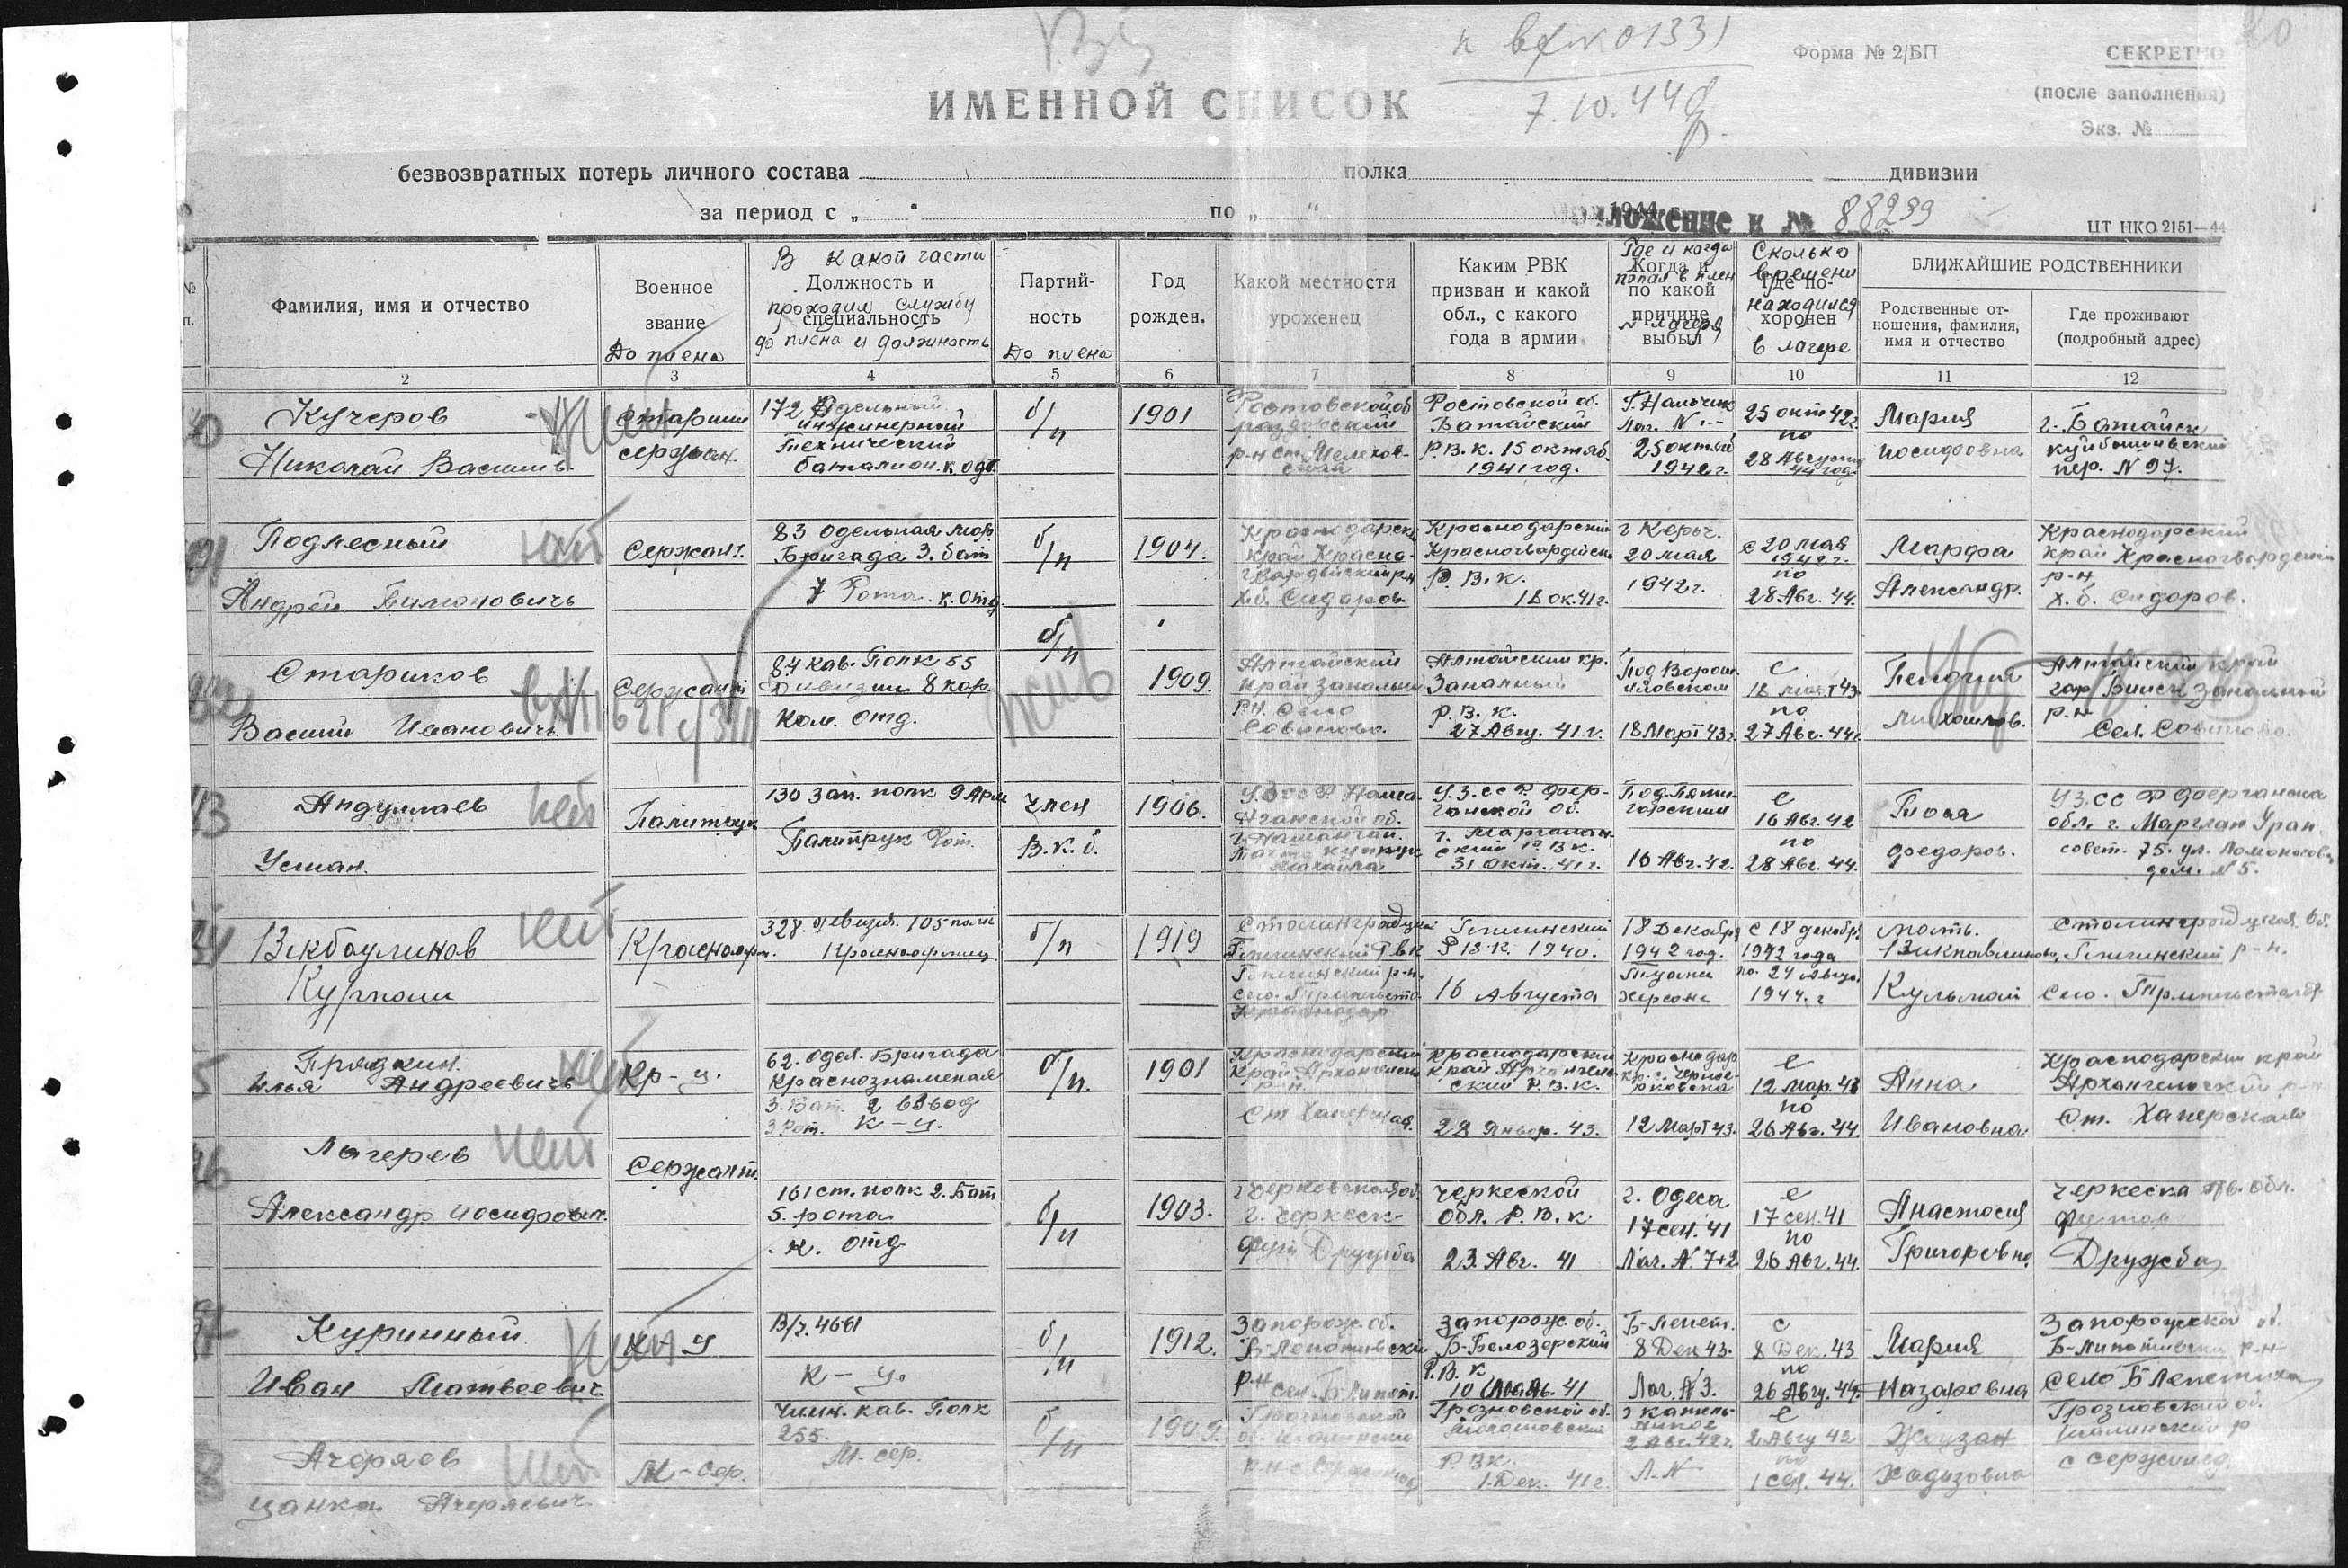 к вх № 01331
7.10.44
Форма № 2/БП
СЕКРЕТНО
(после заполнения)
Экз. №
ИМЕННОЙ СПИСОК
безвозвратных потерь личного состава полка дивизии
за период с „ по „ “ 1944 г.
ложение к № 88299
ЦТ НКО 2151—44
№
п.
Фамилия, имя и отчество
Военное
звание
До плена
В какой части
Должность и
проходил службу
специальность
до плена и должность
Партий-
ность
До плена
Год
рожден.
Какой местности
уроженец
Каким РВК
призван и какой
обл., с какого
года в армии
Где и когда
Когда и
попал в плен
по какой
причине
№ лагеря
выбыл
Сколько
времени
Где по-
находился
хоронен
в лагере
БЛИЖАЙШИЕ РОДСТВЕННИКИ
Родственные от-
ношения, фамилия,
имя и отчество
Где проживают
(подробный адрес)
2 3 4 5 6 7 8 9 10 11 12
Кучеров
Николай Василь.
Старший
сержан.
172 Одельный
инжинерный
Технический
баталион. к. отд.
б/п
1901
Ростовской об
раздорский
р-н ст. Мелехов-
ской
Ростовской об.
Батайский
Р.В.К. 15 октяб.
1941 год.
Г. Нальчик
Лаг. N --
25 октяб
1942 г.
25 окт 42 г.
по
28 Августа
44 год.
Мария
иосифовна
г. Батайск
куйбышевский
пер. N 97.
91
Подлесный
Андрей Тимоновичь
Сержант.
83 Одельная мор.
Бригада 3. бат
7 Рота. к. отд.
б/п
1904.
Краснодарск
край Красно-
гвардейский р-н
х.б. Сидоров.
Краснодарский
Красногвардейск
Р.В.К.
18 ок. 41 г.
г Керчь.
20 мая
1942 г.
с 20 мая
1942 г.
по
28 Авг. 44.
Марфа
Александр.
Краснодарский
край Красногвардейский
р-н,
х.б. Сидоров.
Стариков
Василий Ивановичь
Сержант
84 кав. Полк 55
Дивизии 8 кор.
Ком. отд.
б/п
жив
1909.
Алтайский
край Зональный
р-н. село
Савиново.
Алтайский кр.
Зональный
Р.В.К.
27 Авгу. 41 г.
Под Ворош-
иловском
18 Март 43 г.
с
18 март 43
по
27 Авг. 44 г.
Пелогия
михайлов.
Алтайский край
гор Бийск Зональный
р-н
Сел. Савиново.
Андуллаев
Усман.
Палитрук
130 Зап. полк 9 Арм
Палитрук Рот.
член
В.к.б.
1906.
нганской об.
г. Наманган.
У.З.ССР Фер-
ганской об.
г. Маргилан.
ский Р.В.К.
31 окт. 41 г.
Под Пяти-
горским
16 Авг. 42.
с
16 Авг. 42
по
28 Авг. 44.
Тося
федоров.
УЗ.ССР Ферганска
обл. г. Маргилан
совет. 75. ул. Ломоносова
дом. N 5.
Векбаулинов
Красноарм.
328. Девизия. 105 полк
Красноармеец.
б/п
1919
Сталинградский
Р.В.К. 1940.
16 Августа
18 Декабря
1942 год.
с 18 декабр.
1942 года
по. 24 Августа.
1944. г
мать.
Сталинградская Об.
Прядкин.
Илья Андреевичь
Кр-ц.
62. одел. Бригада
Краснознаменая
3. Бат. 2 взвод
3 Рот. К-ц.
б/п.
1901
Краснодарский
Край Архангельск
р-н.
Краснодарский
край Архангель-
ский Р.В.К.
28 Январ. 43.
Краснодар
12 Март 43.
с
12 мар. 43
по
26 Авг. 44.
Анна
Ивановна
Краснодарский край
Архангельский р-н
Ст. Хаперская
Лагерев
Александр иосифович.
Сержант.
161 ст. полк 2. Бат
5. рота
к. отд
б/п
1903.
г. Черкеск
Дружба
Черкеской
Обл. Р.В.К.
23. Авг. 41
г. Одеса
17 сен. 41
Лаг. N 7+2
с
17 сен. 41
по
26 Авг. 44.
Анастасия
Григоревна.
Черкеска Ав. обл.
Дружба
Куринный
Иван Матвеевич.
К-ц
В/ч. 4661
К-ц.
б/п
1912.
Запорож. об.
Запорож об.
Б-Белозерский
Р.В.К
10 41
Б-Лепет.
8 Дек 43.
Лаг. N 3.
с
8 Дек. 43
по
26 Авгу. 44.
Мария
Назаровна
Запорожской об.
Село Б Лепетиха
Ачеряев
цанка Ачеряевич
М-Сер.
кав. Полк
255.
М-сер.
б/п
1909.
Грозновской
Грозновской об.
Р.В.К.
1. Дек. 41 г.
2 Авг. 42 г.
Л.N-
с
2 Авгу 42
по
1 сен. 44.
Жаузан
Хадизовна
Грозновский об.